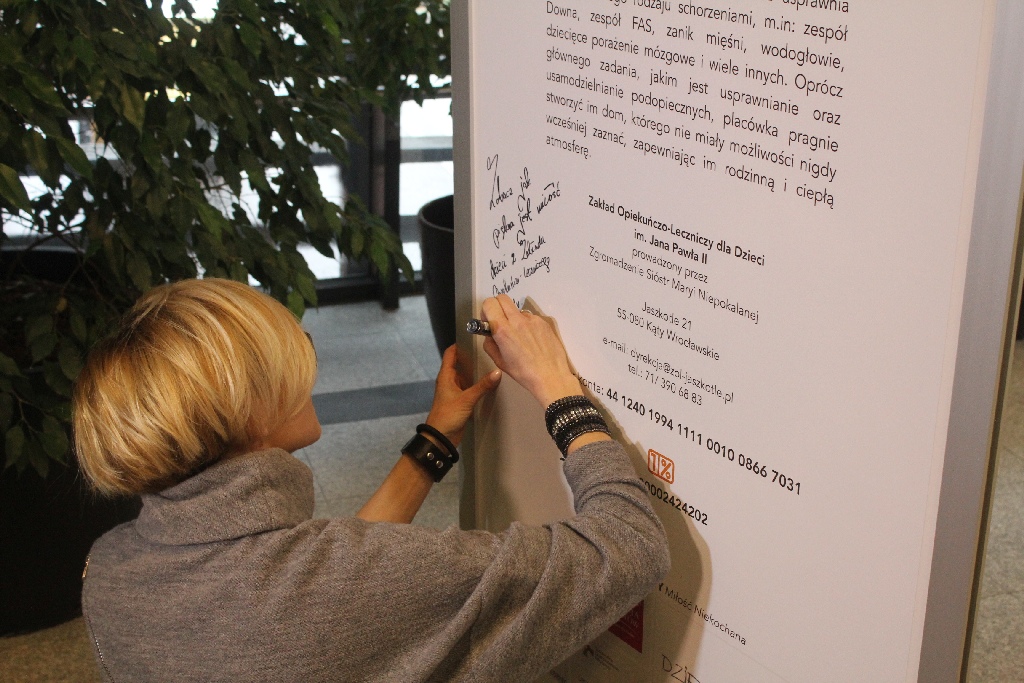 rodzaju schorzeniami, m.in: zespół
Downa, zespół FAS, zanik mięśni, wodogłowie,
dziecięce porażenie mózgowe i wiele innych. Oprócz
głównego zadania, jakim jest usprawnianie oraz
usamodzielnianie podopiecznych, placówka pragnie
stworzyć im dom, którego nie miały możliwości nigdy
wcześniej zaznać, zapewniając im rodzinną i ciepłą
atmosferę.
Zobacz jak
pełna jest miłość
dzieci z Zakładu
Zakład Opiekuńczo-Leczniczy dla Dzieci
im. Jana Pawła II
prowadzony przez
Zgromadzenie Sióstr Maryi Niepokalanej
Jaszkotle 21
55-080 Kąty Wrocławskie
e-mail: dyrekcja@zol-jaszkotle.pl
tel.: 71/ 390 68 83
konta: 44 1240 1994 1111 0010 0866 7031
1%
0002424202
Miłość Niekochana